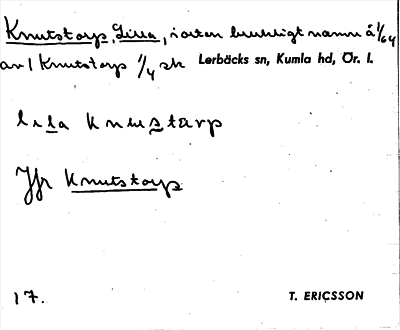 Knutstorp, Lilla, i orten brukligt namn å 1/64
av 1 Knutstorp 1/4 sk Lerbäcks sn, Kumla hd, Ör. l.
lila knustärp
Jfr Knutstorp
17. T. ERICSSON